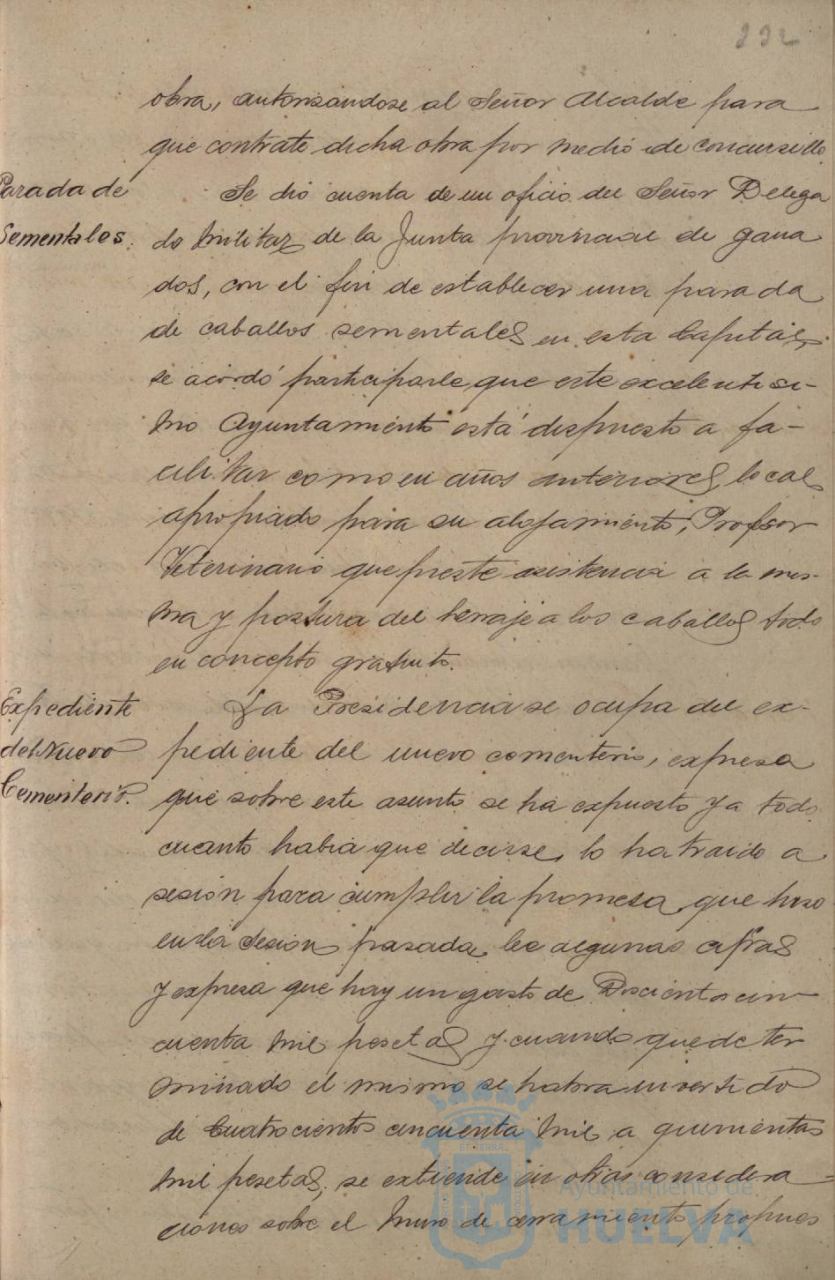 232
obra, autorisandose al Señor Alcalde para
que contrate dicha obra por medio de concursillo
Parada de
Sementales.
Se dió cuenta de un oficio del Señor Delega
do Militar de la Junta provincial de gana
dos, con el fin de establecer una parada
de caballos sementales en esta Capital,
se acordó participarle que este excelentisi-
mo Ayuntamiento está dispuesto a fa-
cilitar como en años anteriores local
apropiado para su alojamiento, Profesor
Veterinario que preste asistencia a la mis-
ma y postura del herraje a los caballos todo
en concepto gratuito.
Expediente
del Nuevo
Cementerio.
La Presidencia se ocupa del ex-
pediente del nuevo cementerio, expresa
que sobre este asunto se ha expuesto ya todo
cuanto habia que decirse, lo ha traido a
sesión para cumplir la promesa que hiso
en la sesion pasada, lee algunas cifras
y expresa que hay un gasto de Doscientos cin
cuenta mil pesetas y cuando quede ter
minado el mismo se habra invertido
de Cuatrocientos cincuenta mil a quinientas
mil pesetas, se extiende en otras considera-
ciones sobre el muro de cerramiento propues
Ayuntamiento de
HUELVA